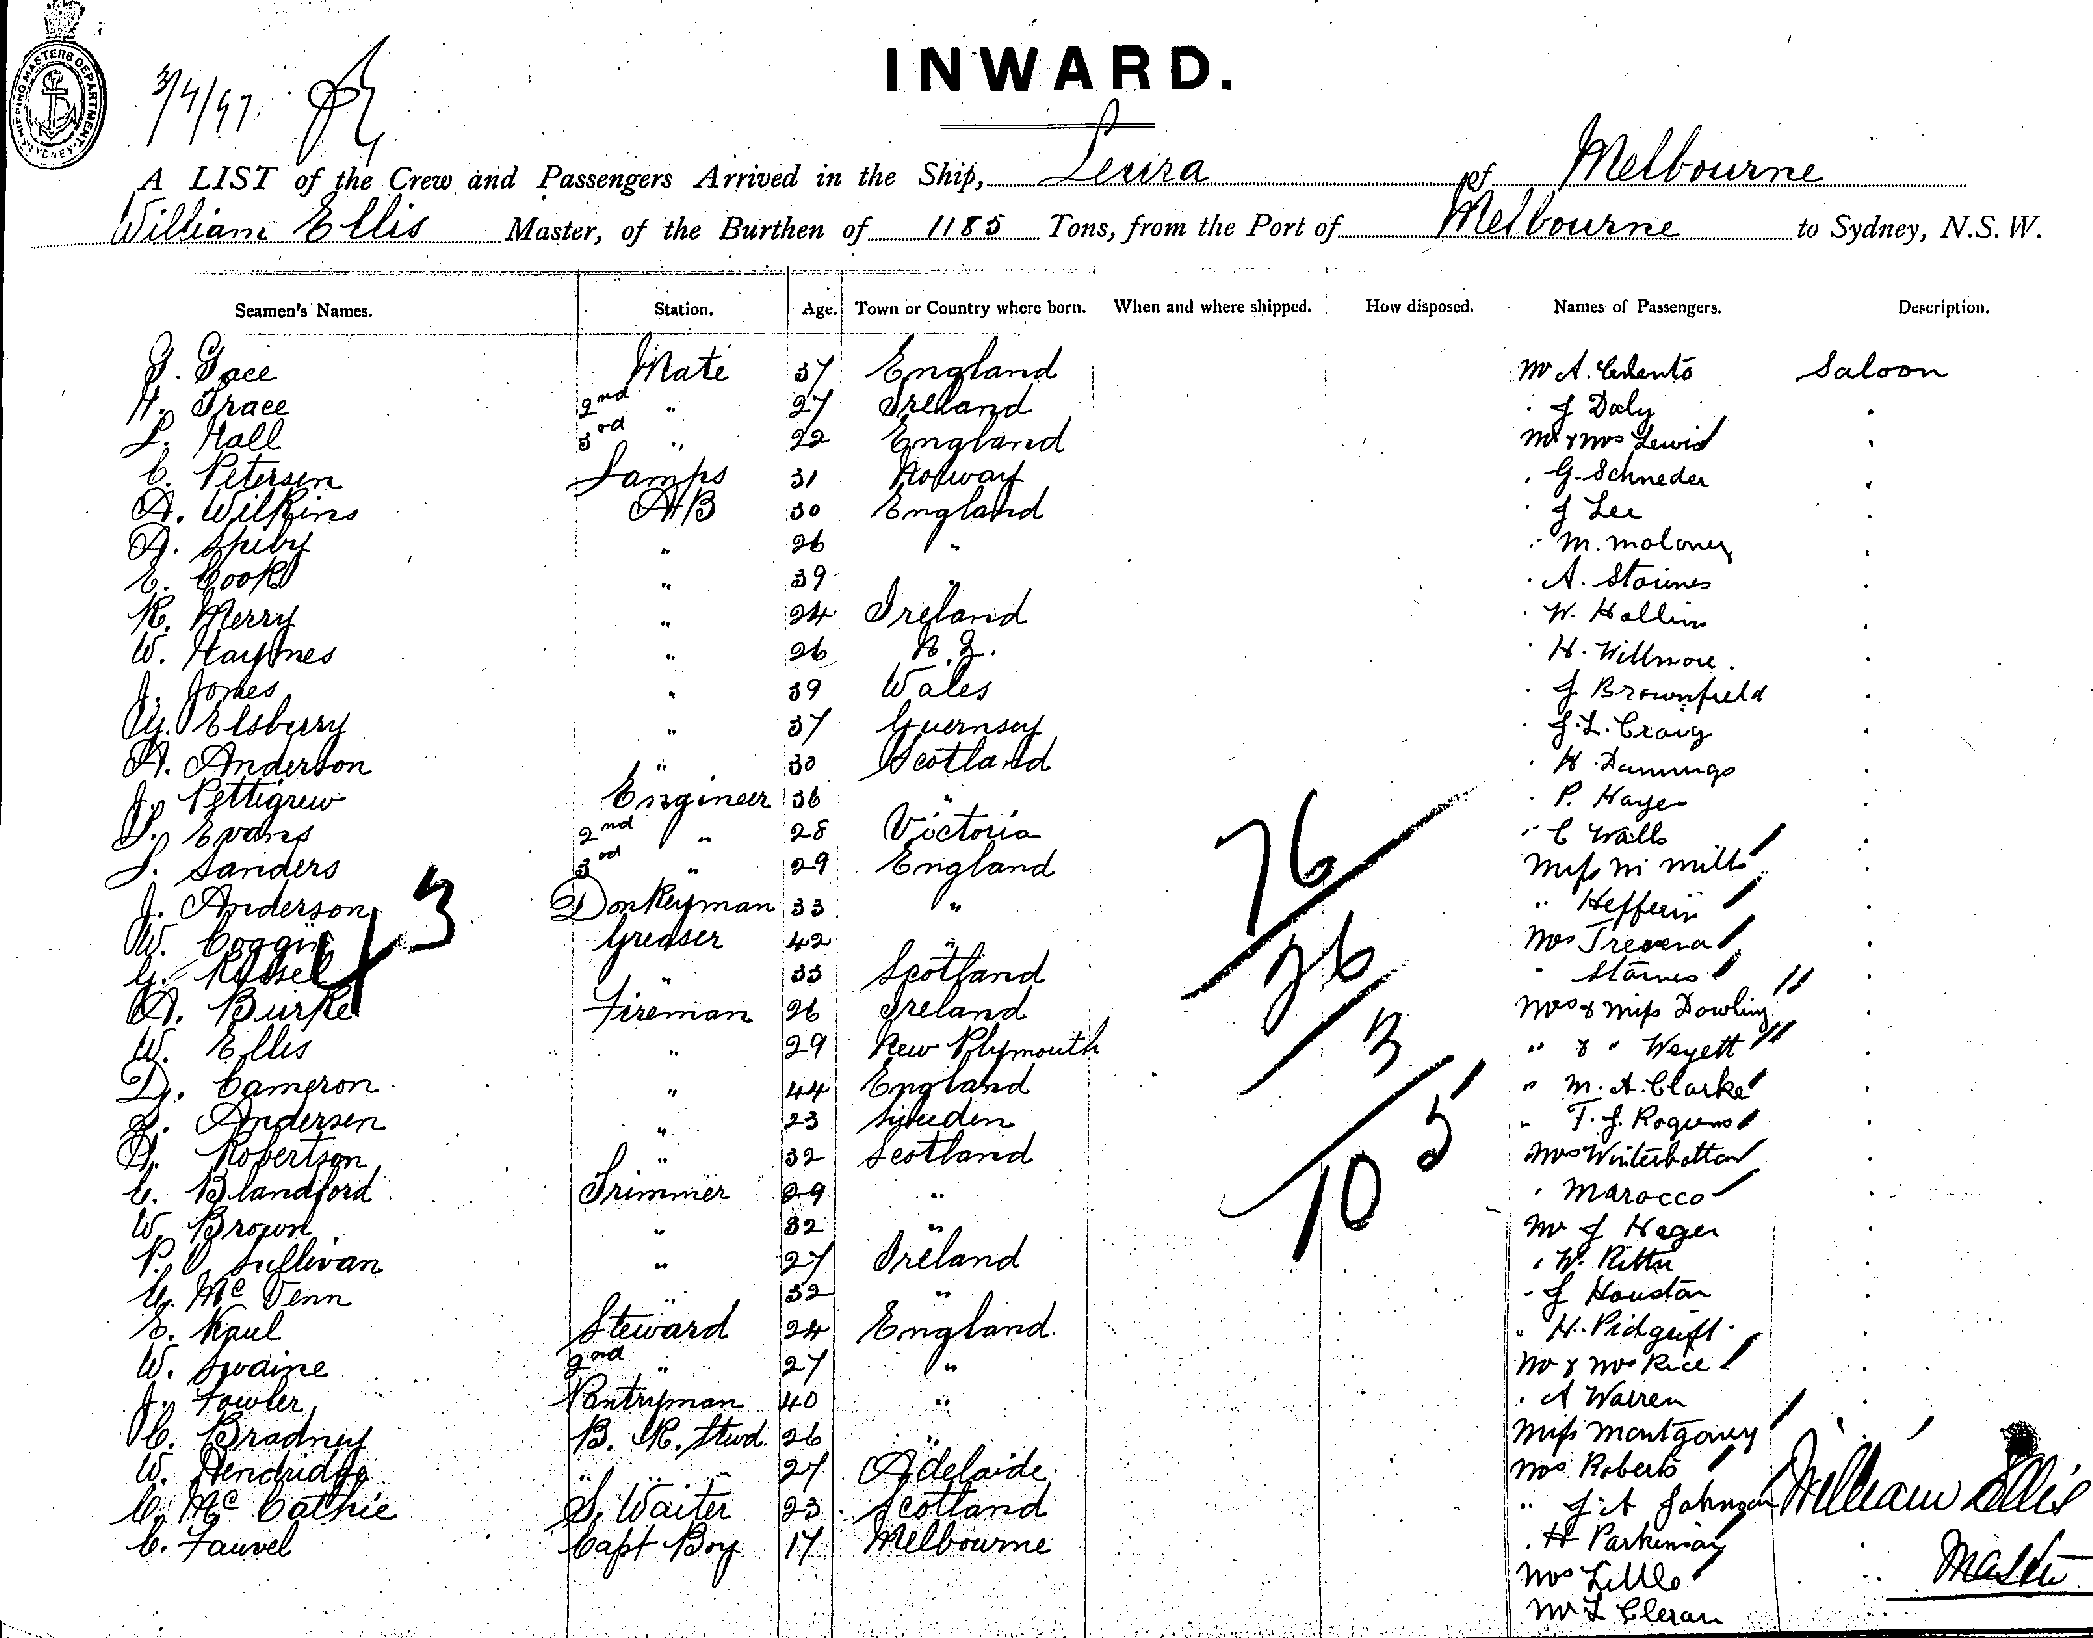 INWARD.
3/4/97
A LIST of the Crew and Passengers Arrived in the Ship, Leura of Melbourne
William Ellis Master, of the Burthen of 1185 Tons, from the Port of Melbourne to Sydney, N.S.W.
Seamen's Names. Station. Age. Town or Country where born. When and where shipped. How disposed. Names of Passengers. Description.
G. Gace Mate 37 England Mr A. Saloon
H. Grace 2nd " 27 Ireland " J Daly "
L. Hall 3rd " 22 England Mr & Mrs Lewis "
C. Petersen Lamps 31 Norway " G. Schneder "
A. Wilkins AB 30 England " J Lee "
A. Spiby " 26 " " M. Maloney "
E. Cook " 39 " " A. Staines "
R. Merry " 24 Ireland " W. Hollins "
W. Haymes " 26 N.Z. " H. Willmore. "
J. Jones " 39 Wales " J Brownfield "
G. Elsberry " 37 Guernsey " J. L. Craig "
A. Anderson " 30 Scotland " H "
J. Pettigrew Engineer 36 " " P. Hayes "
S. Evans 2nd " 28 Victoria " C Walls "
L. Sanders 3rd " 29 England Miss M Mills "
J. Anderson Donkeyman 33 " " Hefferin "
W. Coggin Greaser 42 " Mrs Trevena "
G. Russel " 33 Scotland " Staines "
A. Burke Fireman 26 Ireland Mrs & Miss Dowling "
W. Ellis " 29 New Plymouth " & " Weyett "
D. Cameron " 44 England " M. A. Clarke "
Andersen " 23 Sweden " T. J. "
Robertson " 32 Scotland Mrs Winterbottom "
C. Blandford Trimmer 29 " " Marocco "
W. Brown " 32 " Mr J Hager "
P. O'Sullivan " 27 Ireland " W. "
G. McVenn " 32 " " J Houston "
E. Kaul Steward 24 England " H. "
W. Swaine 2nd " 27 " Mr & Mrs Rice "
J. Fowler Pantryman 40 " " A Warren "
C. Bradney B. R. Stwd. 26 " Miss Montgomery "
W. Hendridge " " 27 Adelaide Mrs Roberts
C. McCathie S. Waiter 23 Scotland " J. A Johnson
C. Fauvel Capt Boy 17 Melbourne " H
Mrs Little
Mr L
76
36
3
105
William Ellis
Master